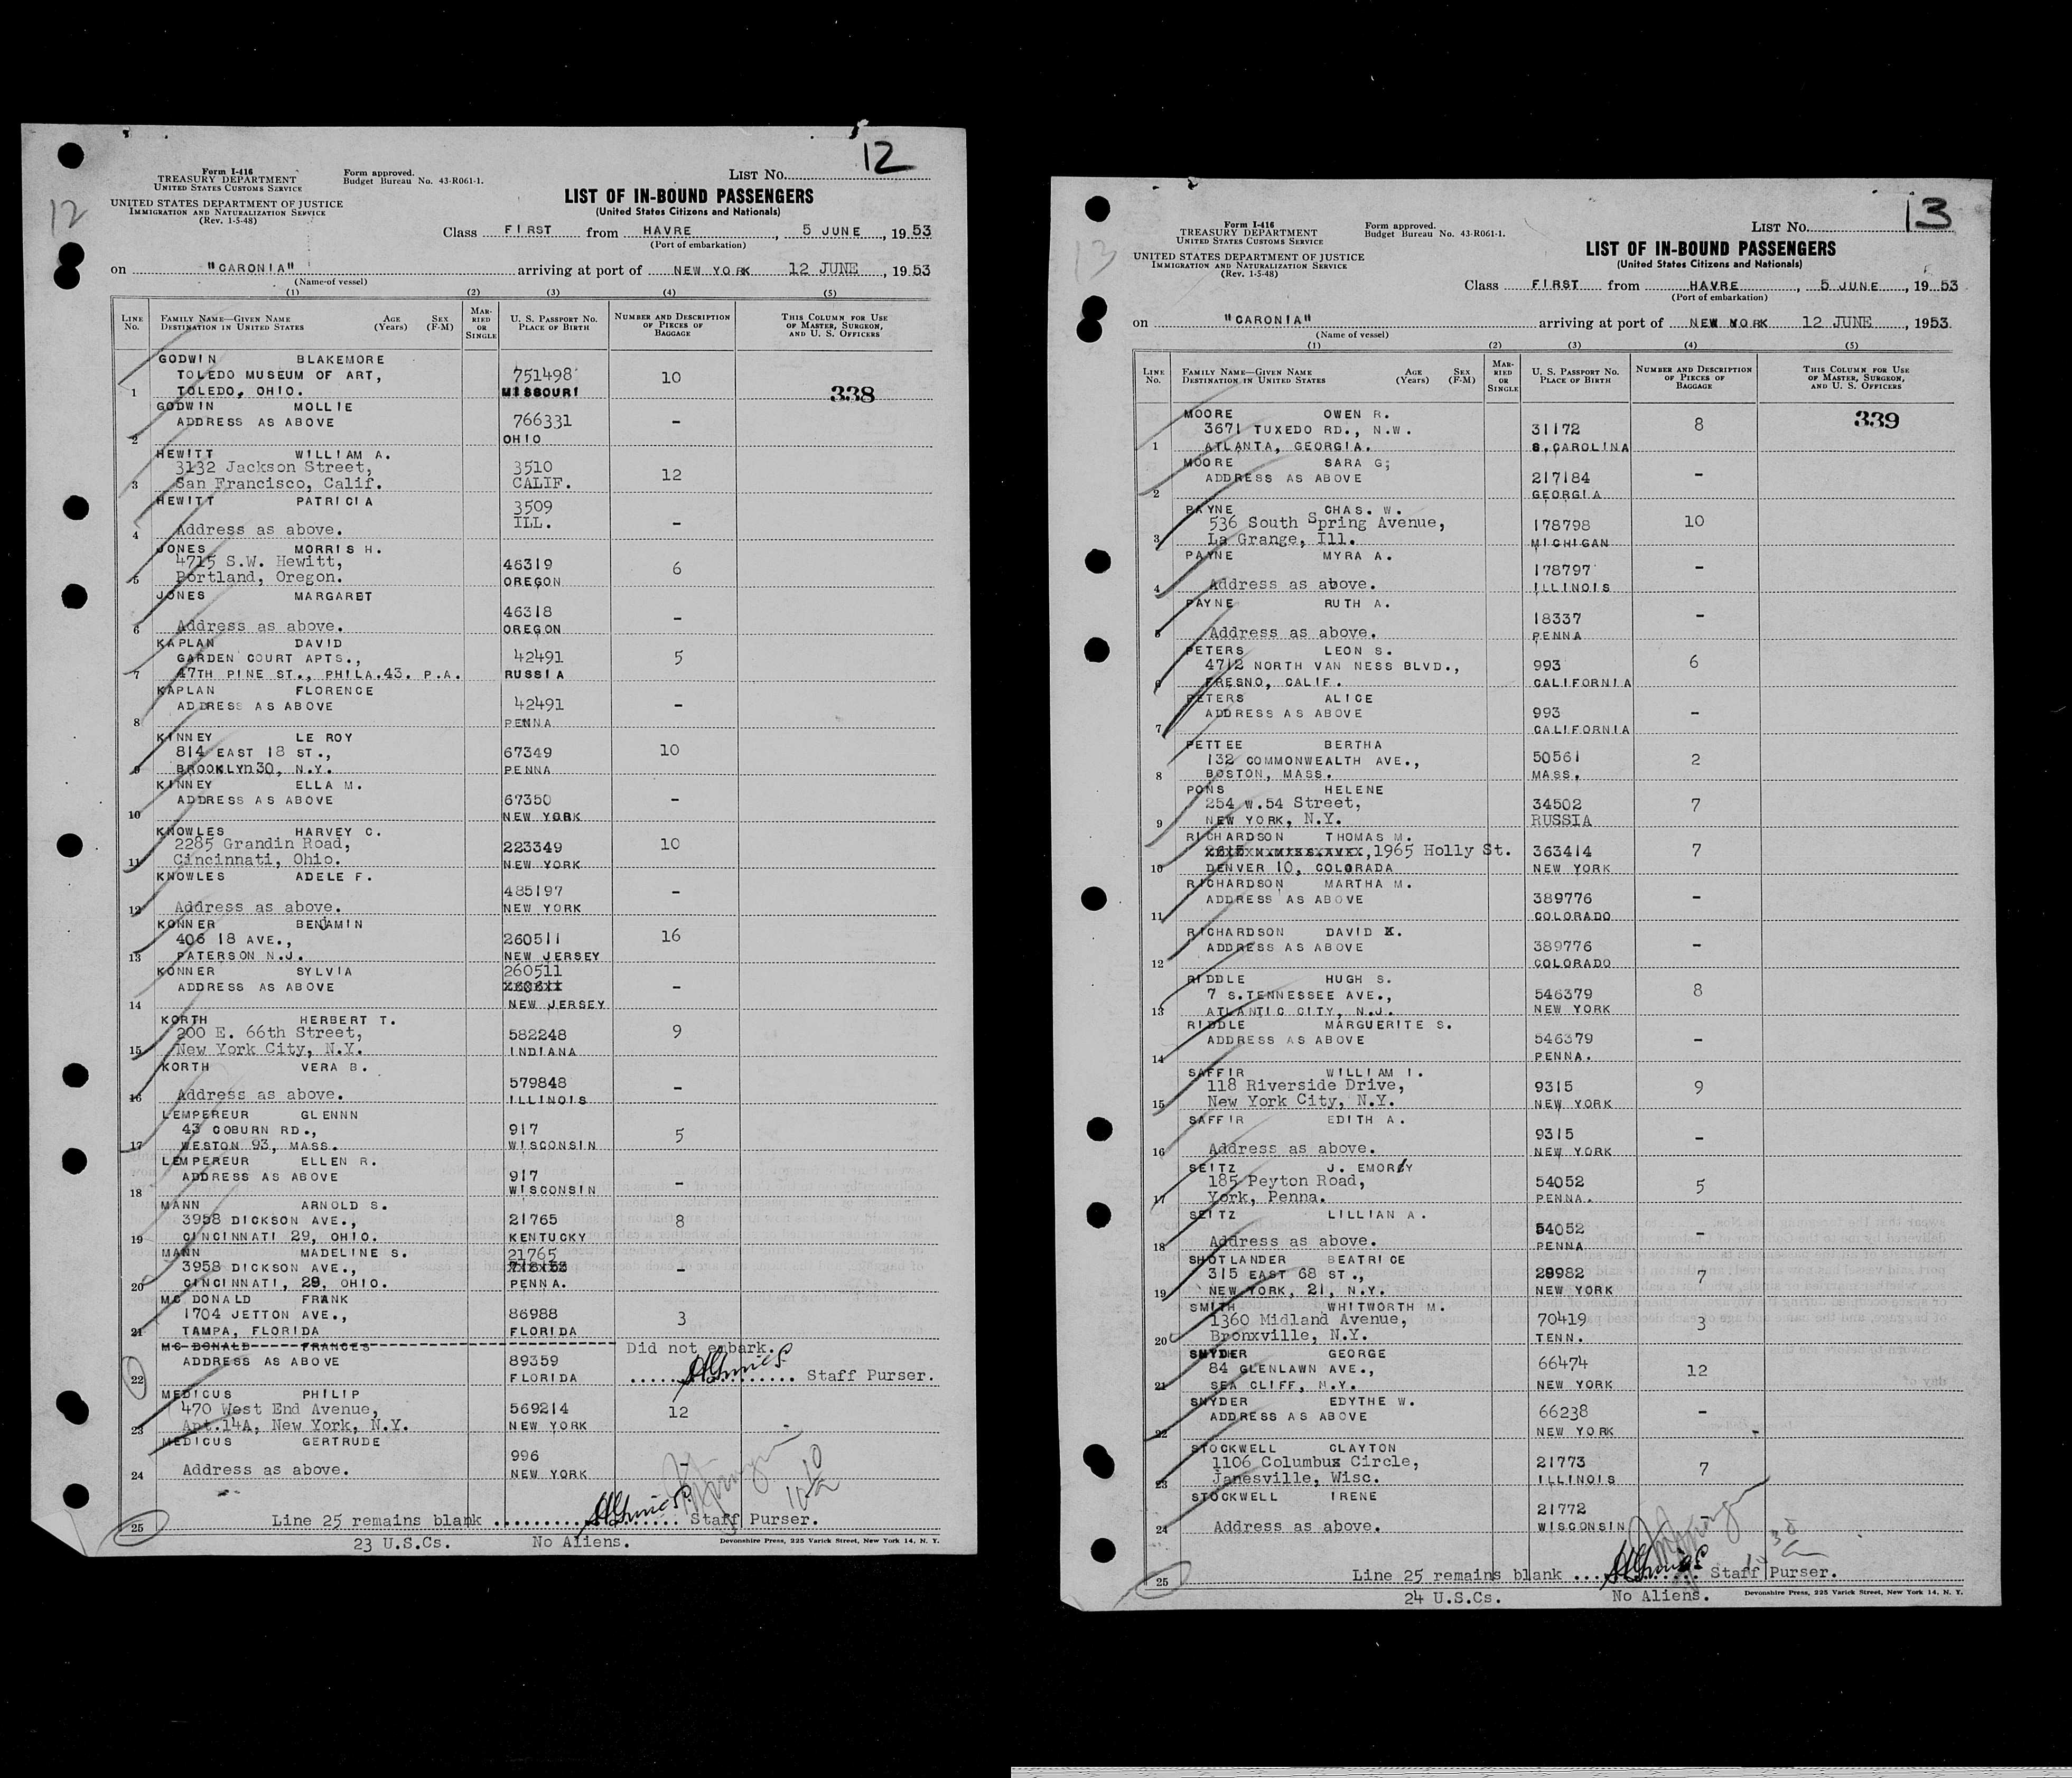 12
12
Form I-416
TREASURY DEPARTMENT
UNITED STATES CUSTOMS SERVICE
Form approved.
Budget Bureau No. 43-R061-1.
LIST NO.
UNITED STATES DEPARTMENT OF JUSTICE
IMMIGRATION AND NATURALIZATION SERVICE
(Rev. 1-5-48)
LIST OF IN-BOUND PASSENGERS
(United States Citizens and Nationals)
Class FIRST from HAVRE, 5 JUNE, 1953
(Port of embarkation)
on "CARONIA" arriving at port of NEW YORK 12 JUNE, 1953
(Name of vessel)
(1) (2) (3) (4) (5)
LINE No. FAMILY NAME—GIVEN NAME DESTINATION IN UNITED STATES AGE (Years) SEX (F-M) MARRIED OR SINGLE U. S. PASSPORT NO. PLACE OF BIRTH NUMBER AND DESCRIPTION OF PIECES OF BAGGAGE THIS COLUMN FOR USE OF MASTER, SURGEON, AND U. S. OFFICERS
GODWIN BLAKEMORE
TOLEDO MUSEUM OF ART, 751498 10
1 TOLEDO, OHIO. MISSOURI 338
GODWIN MOLLIE
ADDRESS AS ABOVE 766331 -
2 OHIO
HEWITT WILLIAM A.
3132 Jackson Street, 3510 12
3 San Francisco, Calif. CALIF.
HEWITT PATRICIA 3509
ILL. -
4 Address as above.
JONES MORRIS H.
4715 S.W. Hewitt, 46319 6
5 Portland, Oregon. OREGON
JONES MARGARET
46318 -
6 Address as above. OREGON
KAPLAN DAVID
GARDEN COURT APTS., 42491 5
7 47TH PINE ST., PHILA.43. P.A. RUSSIA
KAPLAN FLORENCE
ADDRESS AS ABOVE 42491 -
8 PENNA
KINNEY LE ROY
814 EAST 18 ST., 67349 10
9 BROOKLYn30, N.Y. PENNA
KINNEY ELLA M.
ADDRESS AS ABOVE 67350 -
10 NEW YORK
KNOWLES HARVEY C.
2285 Grandin Road, 223349 10
11 Cincinnati, Ohio. NEW YORK
KNOWLES ADELE F.
485197 -
12 Address as above. NEW YORK
KONNER BENJAMIN
406 18 AVE., 260511 16
13 PATERSON N.J. NEW JERSEY
KONNER SYLVIA 260511
ADDRESS AS ABOVE -
14 NEW JERSEY
KORTH HERBERT T.
200 E. 66th Street, 582248 9
15 New York City, N.Y. INDIANA
KORTH VERA B.
579848 -
16 Address as above. ILLINOIS
LEMPEREUR GLENNN
43 COBURN RD., 917 5
17 WESTON 93, MASS. WISCONSIN
LEMPEREUR ELLEN R.
ADDRESS AS ABOVE 917 -
18 WISCONSIN
MANN ARNOLD S.
3958 DICKSON AVE., 21765 8
19 CINCINNATI 29, OHIO. KENTUCKY
MANN MADELINE S. 21765
3958 DICKSON AVE., -
20 CINCINNATI, 29, OHIO. PENNA.
MC DONALD FRANK
1704 JETTON AVE., 86988 3
21 TAMPA, FLORIDA FLORIDA
MC DONALD FRANCES Did not embark.
ADDRESS AS ABOVE 89359
22 FLORIDA Staff Purser.
MEDICUS PHILIP
470 West End Avenue, 569214 12
23 Apt.14A, New York, N.Y. NEW YORK
MEDICUS GERTRUDE
996 -
24 Address as above. NEW YORK
25 Line 25 remains blank Staff Purser.
23 U.S.Cs. No Aliens.
Devonshire Press, 225 Varick Street, New York 14, N. Y.
13
13
Form I-416
TREASURY DEPARTMENT
UNITED STATES CUSTOMS SERVICE
Form approved.
Budget Bureau No. 43-R061-1.
LIST NO.
UNITED STATES DEPARTMENT OF JUSTICE
IMMIGRATION AND NATURALIZATION SERVICE
(Rev. 1-5-48)
LIST OF IN-BOUND PASSENGERS
(United States Citizens and Nationals)
Class FIRST from HAVRE, 5 JUNE, 1953
(Port of embarkation)
on "CARONIA" arriving at port of NEW YORK 12 JUNE, 1953
(Name of vessel)
(1) (2) (3) (4) (5)
LINE No. FAMILY NAME—GIVEN NAME DESTINATION IN UNITED STATES AGE (Years) SEX (F-M) MARRIED OR SINGLE U. S. PASSPORT NO. PLACE OF BIRTH NUMBER AND DESCRIPTION OF PIECES OF BAGGAGE THIS COLUMN FOR USE OF MASTER, SURGEON, AND U. S. OFFICERS
MOORE OWEN R. 339
3671 TUXEDO RD., N.W. 31172 8
1 ATLANTA, GEORGIA. S.CAROLINA
MOORE SARA G;
ADDRESS AS ABOVE 217184 -
2 GEORGIA
PAYNE CHAS. W.
536 South Spring Avenue, 178798 10
3 La Grange, Ill. MICHIGAN
PAYNE MYRA A.
178797 -
4 Address as above. ILLINOIS
PAYNE RUTH A.
18337 -
5 Address as above. PENNA
PETERS LEON S.
4712 NORTH VAN NESS BLVD., 993 6
6 FRESNO, CALIF. CALIFORNIA
PETERS ALICE
ADDRESS AS ABOVE 993 -
7 CALIFORNIA
PETTEE BERTHA
132 COMMONWEALTH AVE., 50561 2
8 BOSTON, MASS. MASS.
PONS HELENE
254 W.54 Street, 34502 7
9 NEW YORK, N.Y. RUSSIA
RICHARDSON THOMAS M.
1965 Holly St. 363414 7
10 DENVER 10, COLORADA NEW YORK
RICHARDSON MARTHA M.
ADDRESS AS ABOVE 389776 -
11 COLORADO
RICHARDSON DAVID X.
ADDRESS AS ABOVE 389776 -
12 COLORADO
RIDDLE HUGH S.
7 S.TENNESSEE AVE., 546379 8
13 ATLANTIC CITY, N.J. NEW YORK
RIDDLE MARGUERITE S.
ADDRESS AS ABOVE 546379 -
14 PENNA.
SAFFIR WILLIAM I.
118 Riverside Drive, 9315 9
15 New York City, N.Y. NEW YORK
SAFFIR EDITH A.
9315 -
16 Address as above. NEW YORK
SEITZ J. EMORY
185 Peyton Road, 54052 5
17 York, Penna. PENNA.
SEITZ LILLIAN A.
54052 -
18 Address as above. PENNA
SHOTLANDER BEATRICE
315 EAST 68 ST., 29982 7
19 NEW YORK, 21, N.Y. NEW YORK
SMITH WHITWORTH M.
1360 Midland Avenue, 70419 3
20 Bronxville, N.Y. TENN.
SNYDER GEORGE
84 GLENLAWN AVE., 66474 12
21 SEA CLIFF, N.Y. NEW YORK
SNYDER EDYTHE W.
ADDRESS AS ABOVE 66238 -
22 NEW YORK
STOCKWELL CLAYTON
1106 Columbus Circle, 21773 7
23 Janesville, Wisc. ILLINOIS
STOCKWELL IRENE
21772 -
24 Address as above. WISCONSIN
25 Line 25 remains blank Staff Purser.
24 U.S.Cs. No Aliens.
Devonshire Press, 225 Varick Street, New York 14, N. Y.